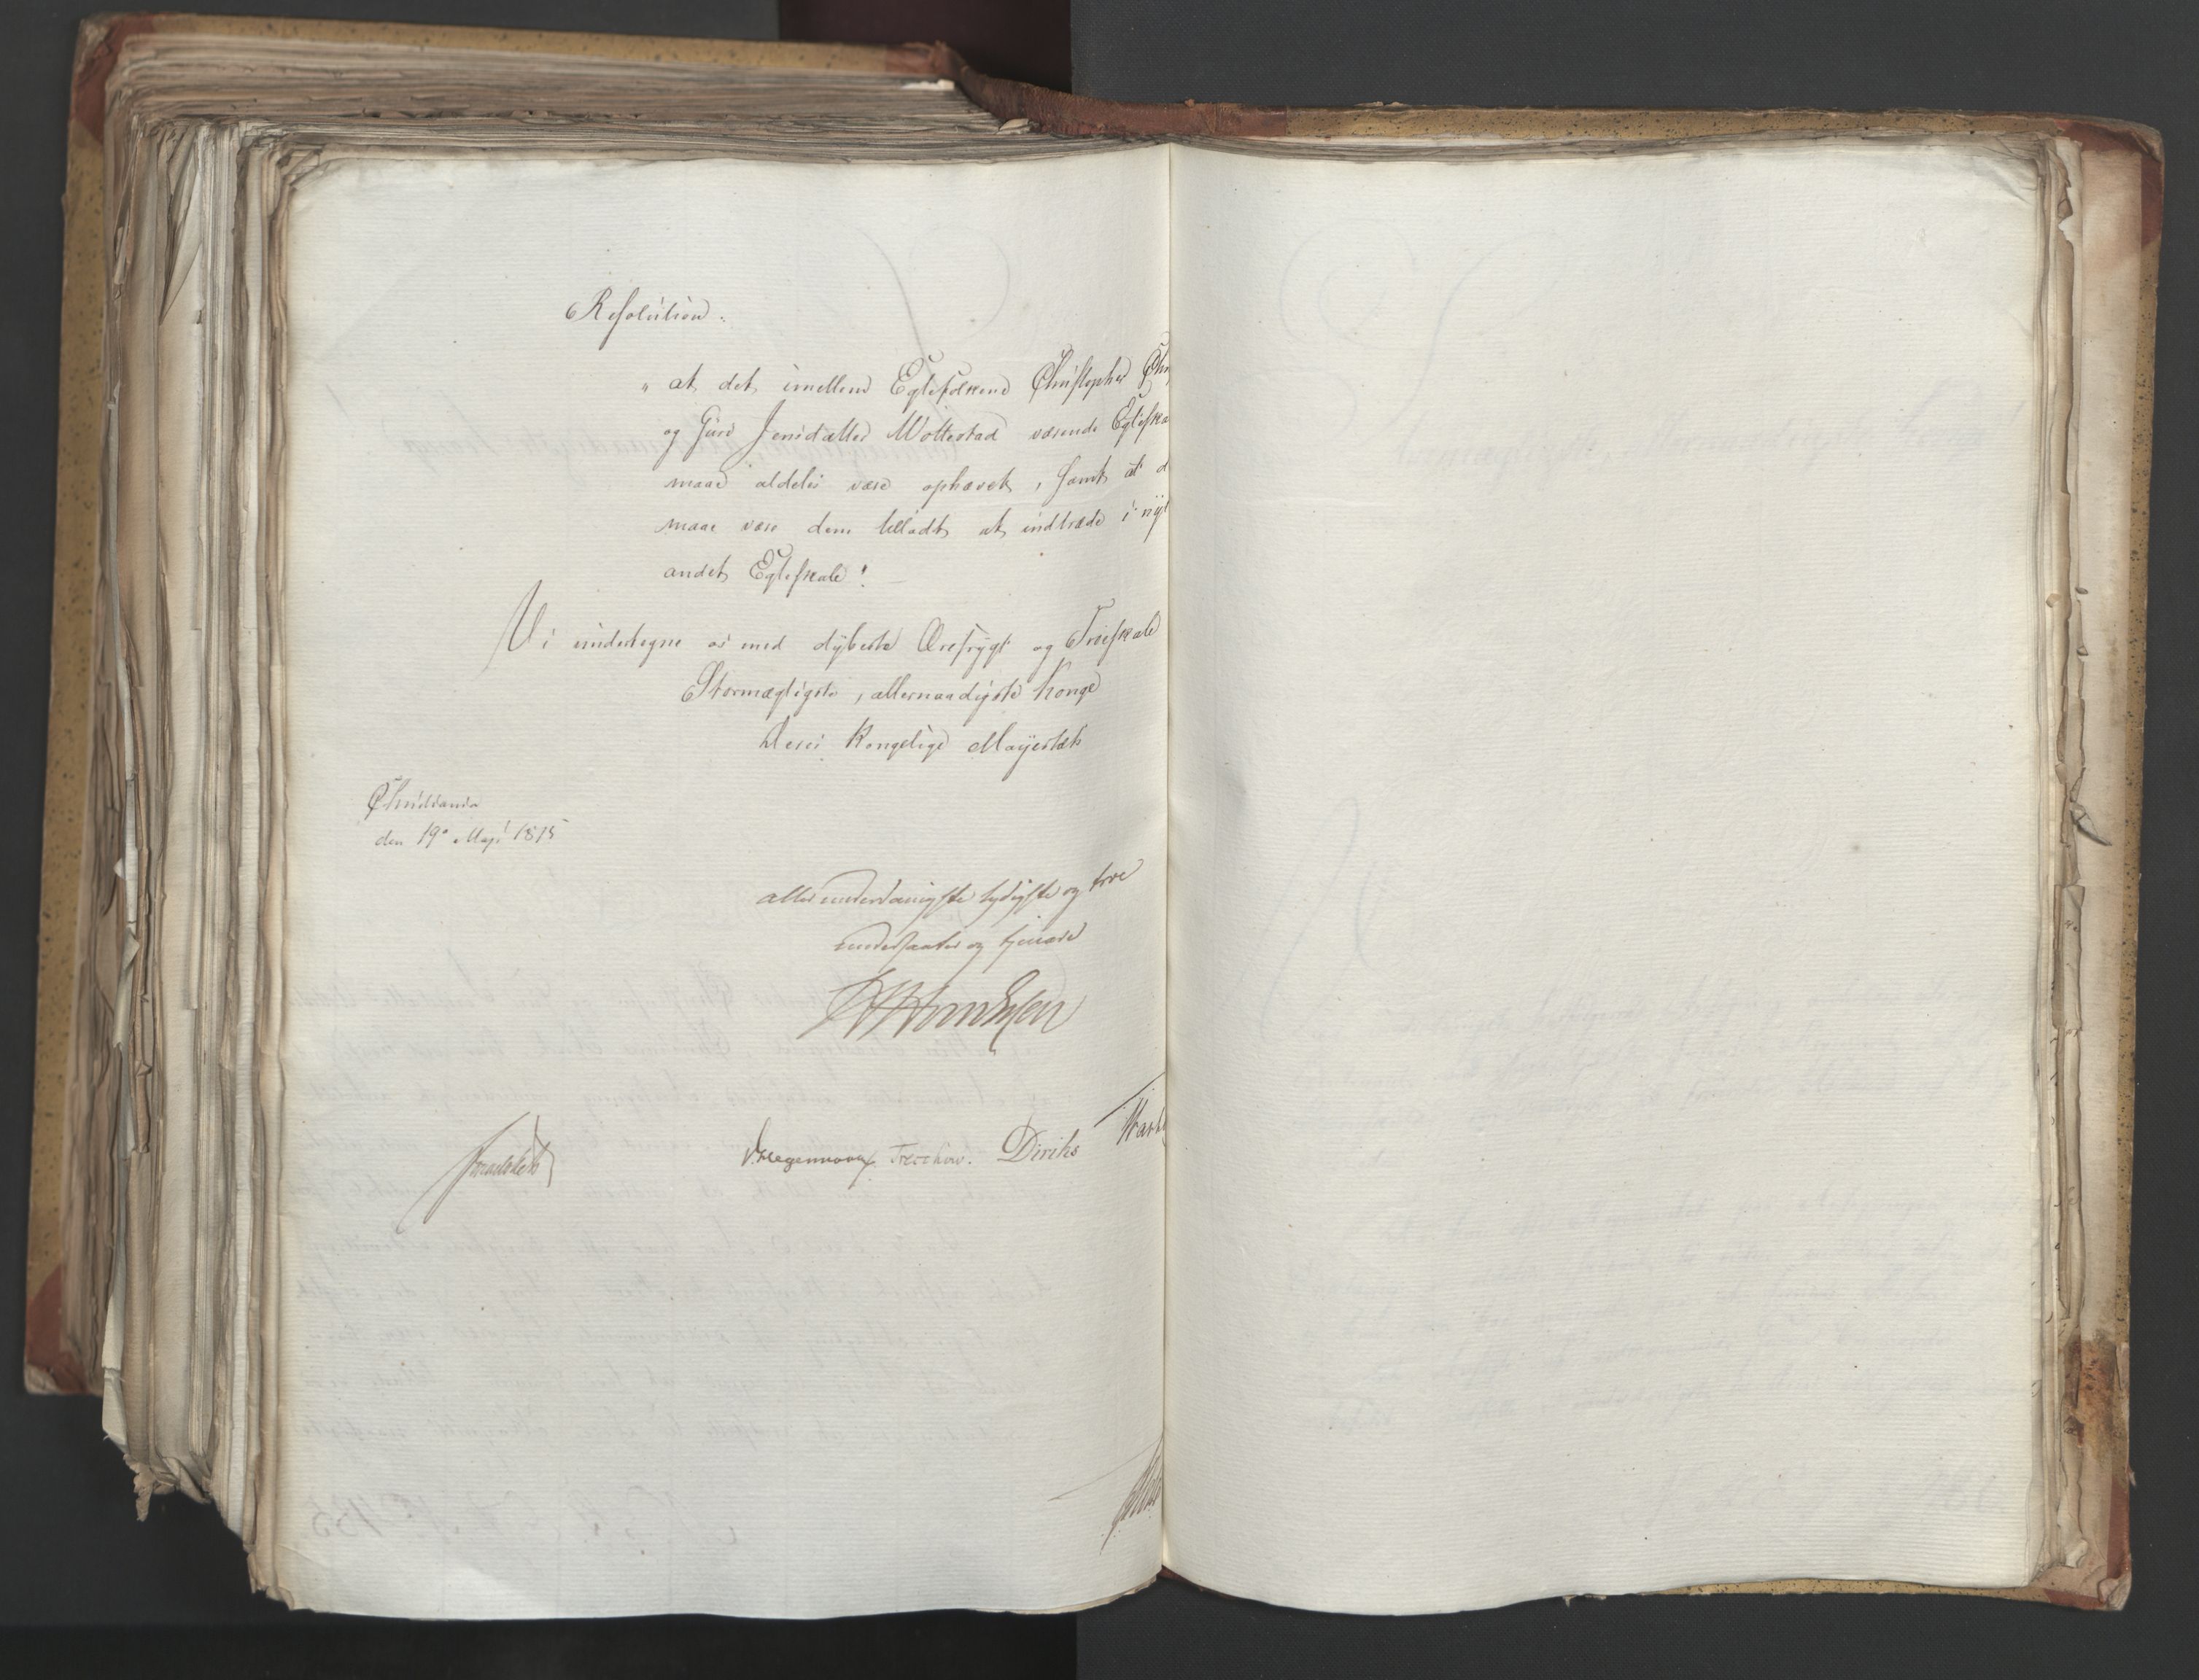 Resolution:
"at det imellem Egtefolkene Christopher Chri
og Guri Jensdatter Mottestad værende Egteska
maae aldeles være ophævet, samt at d
maae være dem tilladt at indtræde i nyt
andet Egteskab!
Vi undertegne os med dybeste Ærefrygt og Troeskab
Stormægtigste, allernaadigste Konge
Deres Kongelige Mayestæts
Christiania
den 19e Maji 1815
allerunderdanigste lydigste og troe
undersaatter og tjenere
Sommerhielm
Hegermann Treschow. Diriks